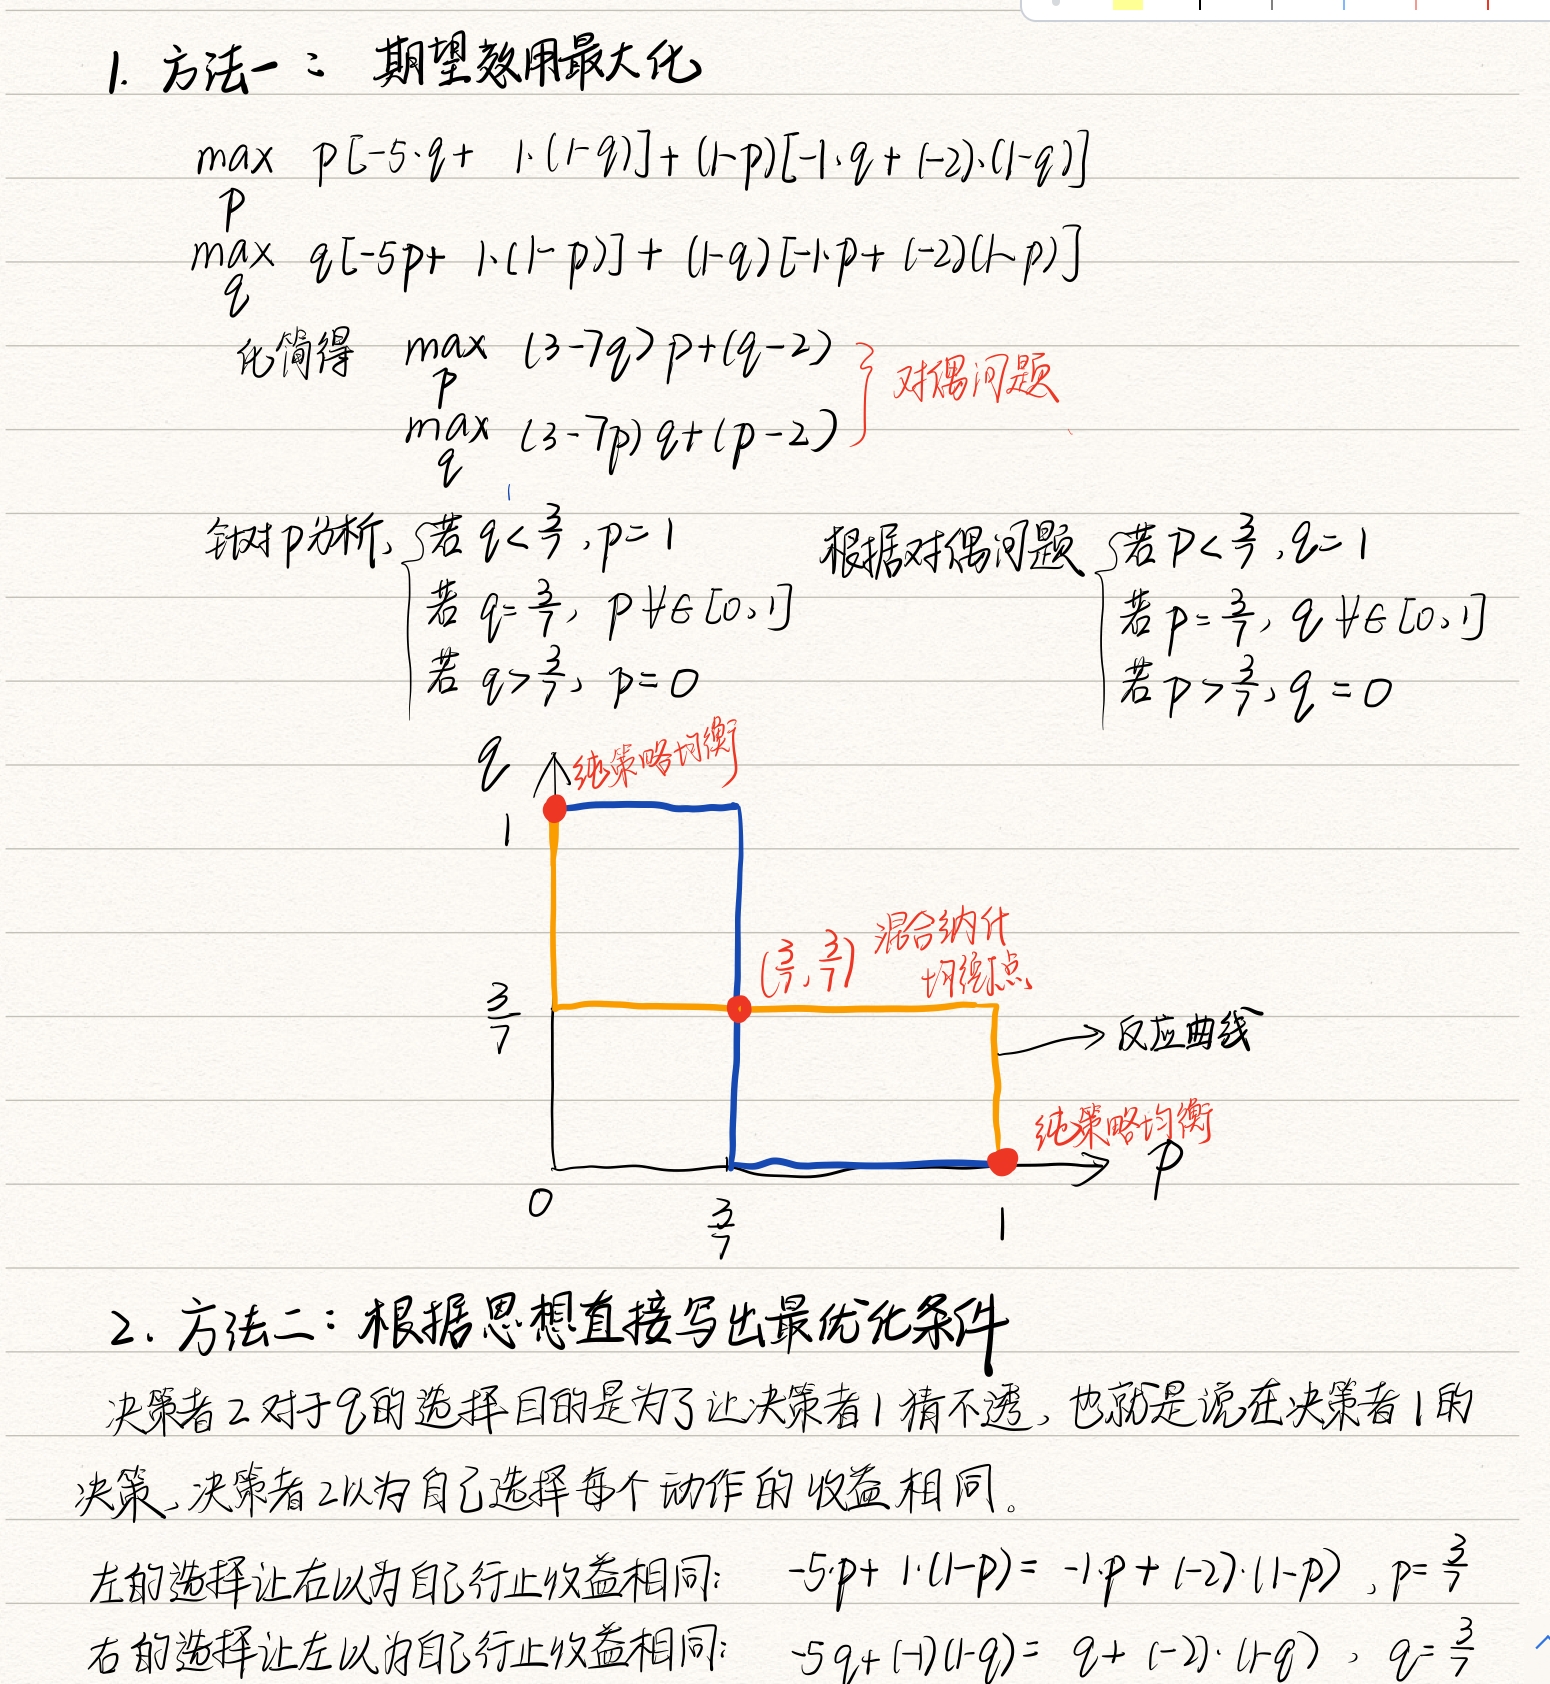 1. 方法一： 期望效用最大化
max p [-5·q + 1·(1-q)] + (1-p)[-1·q + (-2)·(1-q)]
p
max q [-5p + 1·(1-p)] + (1-q)[-1·p + (-2)(1-p)]
q
化简得 max (3-7q) p + (q-2)
p
max (3-7p) q + (p-2)
q
对偶问题
针对p分析, { 若 q < 3/7, p = 1
若 q = 3/7, p ∀∈ [0, 1]
若 q > 3/7, p = 0
根据对偶问题 { 若 p < 3/7, q = 1
若 p = 3/7, q ∀∈ [0, 1]
若 p > 3/7, q = 0
q
纯策略均衡
1
(3/7, 3/7) 混合纳什
均衡点
3/7
反应曲线
纯策略均衡
p
0
3/7
1
2. 方法二：根据思想直接写出最优化条件
决策者2对于q的选择目的是为了让决策者1猜不透, 也就是说在决策者1的
决策, 决策者2以为自己选择每个动作的收益相同。
左的选择让右以为自己行止收益相同: -5·p + 1·(1-p) = -1·p + (-2)·(1-p), p = 3/7
右的选择让左以为自己行止收益相同: -5q + (-1)(1-q) = q + (-2)·(1-q), q = 3/7